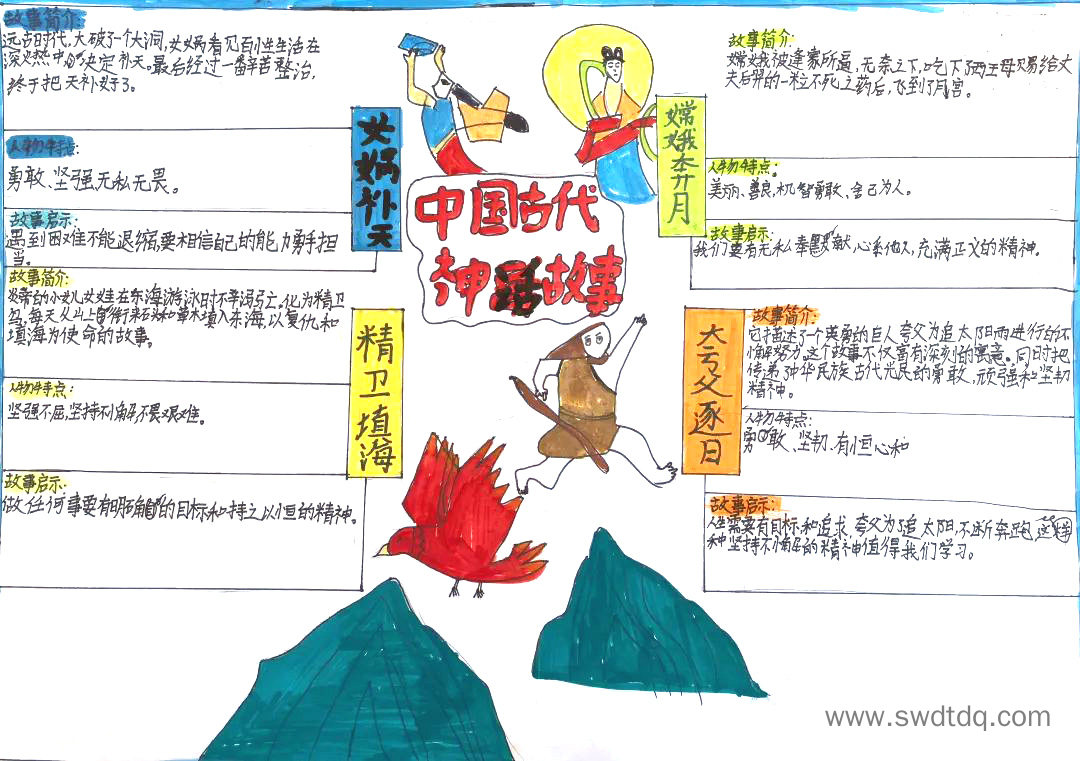 故事简介:
远古时代,天破了个大洞,女娲看见百姓生活在
深火热中的决定补天。最后经过一番辛苦整治,
终于把天补好了。
人物特点:
勇敢、坚强、无私无畏。
故事启示:
遇到困难不能退缩,要相信自己的能力勇于担
当。
女娲补天
故事简介:
炎帝的小女儿女娃在东海游泳时不幸溺亡。化为精卫
鸟,每天从山上衔来石头和草木填入东海,以复仇和
填海为使命的故事。
人物特点:
坚强不屈,坚持不懈,不畏艰难。
故事启示:
做任何事要有明确的目标和持之以恒的精神。
精卫填海
中国古代
神话故事
故事简介:
嫦娥被逢蒙所逼,无奈之下,吃下了西王母赐给丈
夫后羿的一粒不死之药后,飞到了月宫。
人物特点:
美丽、善良、机智勇敢、舍己为人。
故事启示:
我们要有无私奉献,心系他人,充满正义的精神。
嫦娥奔月
故事简介:
它描述了一个英勇的巨人夸父为追太阳而进行的不
懈努力。这个故事不仅富有深刻的寓意。同时把
传递了中华民族古代先民的勇敢,顽强和坚韧
精神。
人物特点:
勇敢、坚韧、有恒心和
故事启示:
人生需要有目标,和追求,夸父为了追太阳,不断奔跑,这
种坚持不懈的精神值得我们学习。
夸父逐日
www.swdtdq.com